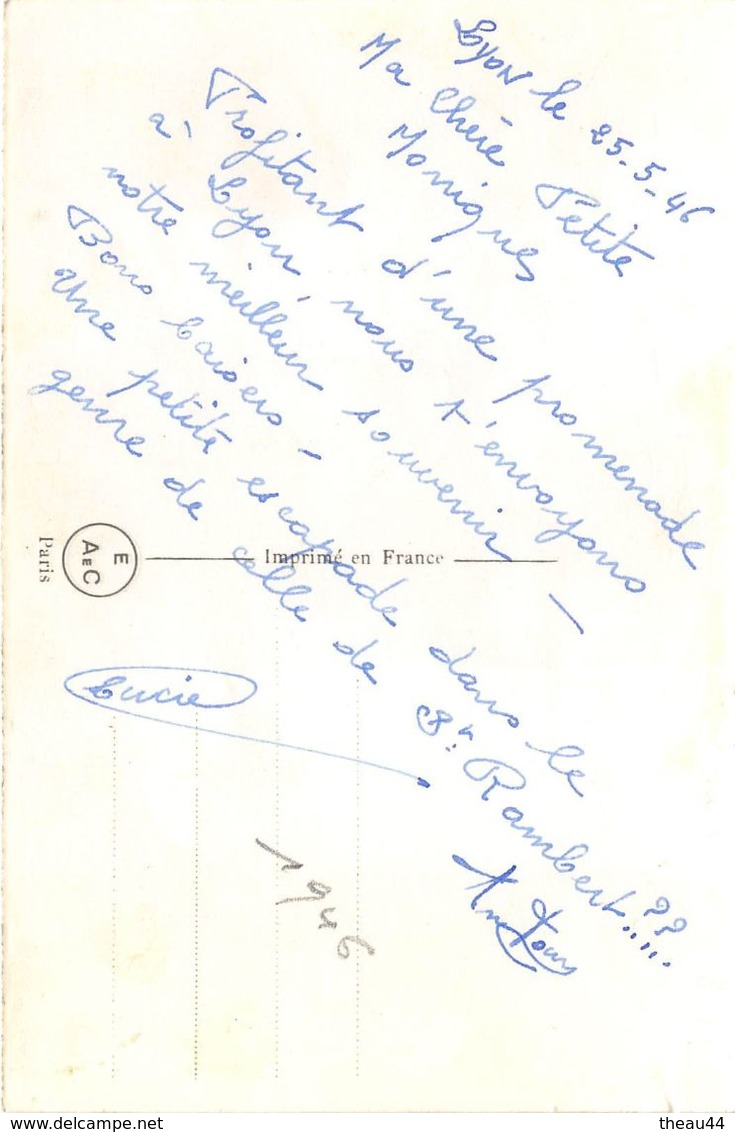 Lyon le 25-5-46
Ma Chère Petite
Moniques
Profitant d'une promenade
à Lyon, nous t'envoyons
notre meilleur souvenir -
Bons baisers -
Une petite escapade dans le
genre de celle de St. Rambert??.....
Lucie
1946
Imprimé en France
E
AEC
Paris
delcampe.net
theau44